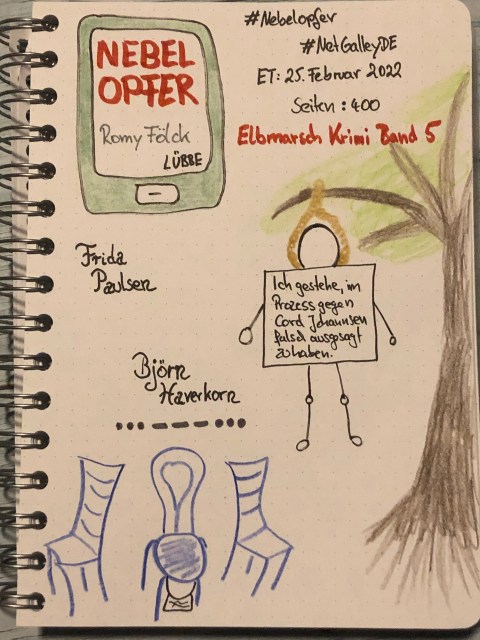 NEBEL
OPFER
Romy Fölck
LÜBBE
#Nebelopfer
#NetGalleyDE
ET: 25. Februar 2022
Seiten: 400
Elbmarsch Krimi Band 5
Frida
Paulsen
Ich gestehe, im
Prozess gegen
Cord Johannsen
falsch ausgesagt
zu haben.
Björn
Haverkorn